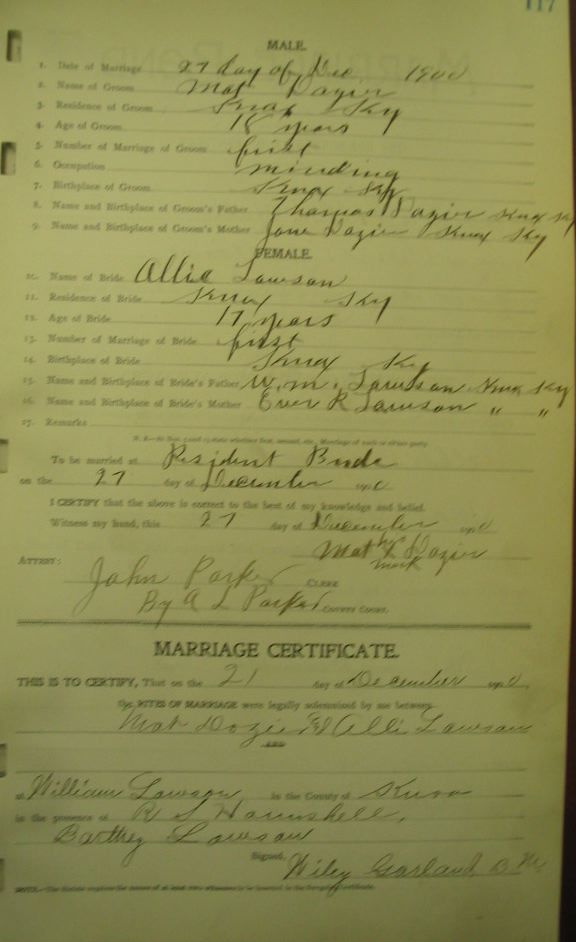 117
MALE.
1. Date of Marriage 27 day of Dec 1900
2. Name of Groom Mat Dozier
3. Residence of Groom Knox Ky
4. Age of Groom 18 years
5. Number of Marriage of Groom first
6. Occupation minding
7. Birthplace of Groom Knox Ky
8. Name and Birthplace of Groom's Father Thomas Dozier Knox Ky
9. Name and Birthplace of Groom's Mother Jane Dozier Knox Ky
FEMALE.
10. Name of Bride Allie Lawson
11. Residence of Bride Knox Ky
12. Age of Bride 17 years
13. Number of Marriage of Bride first
14. Birthplace of Bride Knox Ky
15. Name and Birthplace of Bride's Father W. m. Lawson Knox Ky
16. Name and Birthplace of Bride's Mother Ever R Lawson " "
17. Remarks
To be married at Resident Bride
on the 27 day of December 190 0
I CERTIFY that the above is correct to the best of my knowledge and belief.
Witness my hand, this 27 day of December 190 0
Mat X Dozier
mark
ATTEST:
John Parker CLERK
By A L Parker County Court.
MARRIAGE CERTIFICATE.
THIS IS TO CERTIFY, That on the 21 day of December 190 0
the RITES OF MARRIAGE were legally solemnized by me between
Mat Dozie Alli Lawson
AND
at William Lawson in the County of Knox
in the presence of R S
Lawson
Signed, Wiley Garland